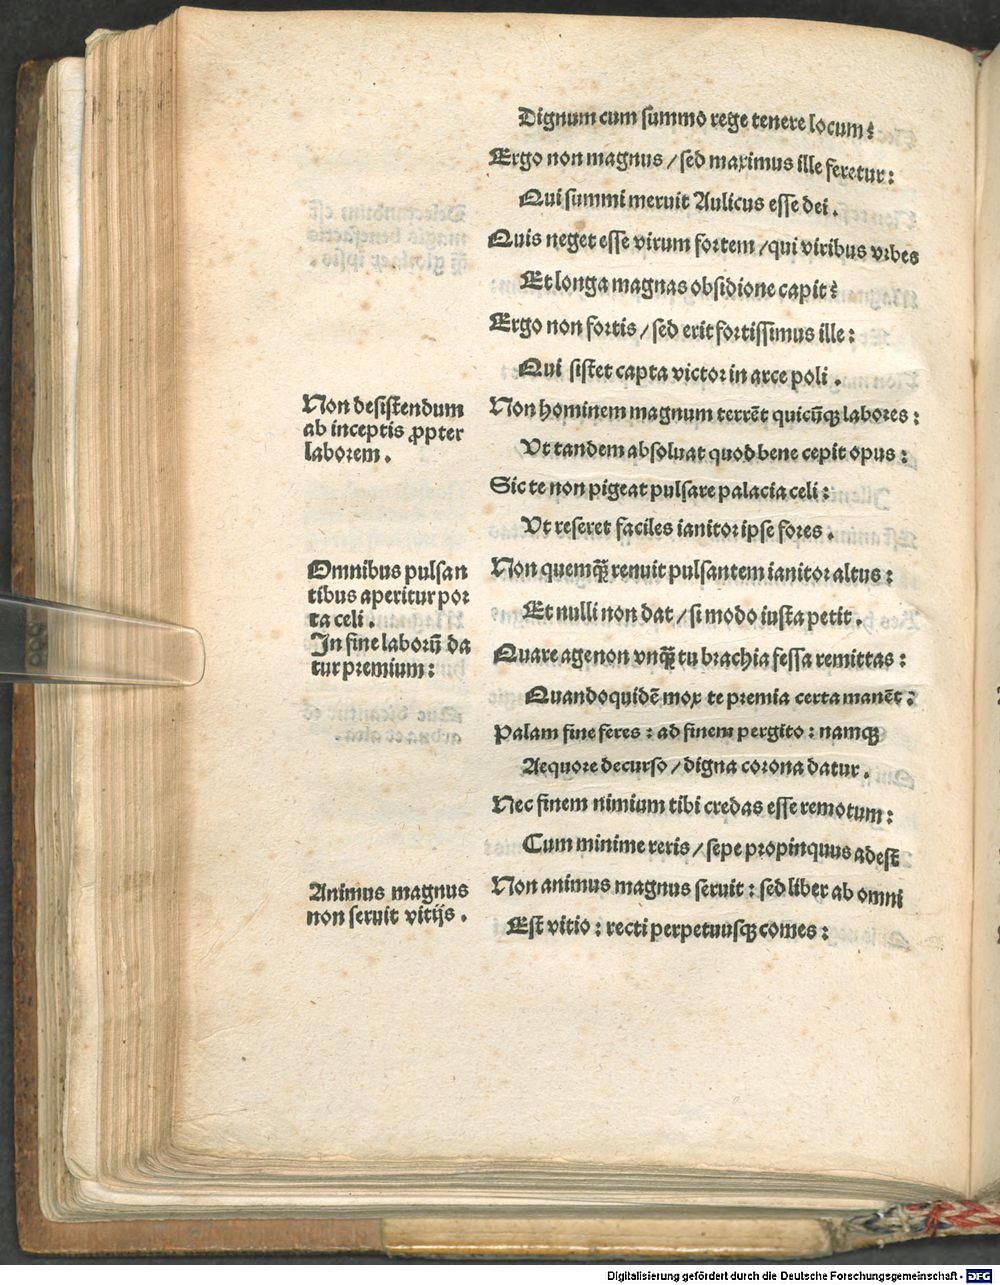 Dignum cum summo rege tenere locum?
Ergo non magnus / sed maximus ille feretur:
Qui summi meruit Aulicus esse dei.
Quis neget esse virum fortem / qui viribus vrbes
Et longa magnas obsidione capit?
Ergo non fortis / sed erit fortissimus ille:
Qui sistet capta victor in arce poli.
Non desistendum
ab inceptis ꝓpter
laborem.
Non hominem magnum terrēt quicūqꝫ labores:
Vt tandem absoluat quod bene cepit opus:
Sic te non pigeat pulsare palacia celi:
Vt reseret faciles ianitor ipse fores.
Omnibus pulsan
tibus aperitur por
ta celi.
In fine laborū da
tur premium:
Non quemqȝ̄ renuit pulsantem ianitor altus:
Et nulli non dat / si modo iusta petit.
Quare age non vnqȝ̄ tu brachia fessa remittas:
Quandoquidē mox te premia certa manēt:
Palam fine feres: ad finem pergito: namqꝫ
Aequore decurso / digna corona datur.
Nec finem nimium tibi credas esse remotum:
Cum minime reris / sepe propinquus adest
Animus magnus
non seruit vitijs.
Non animus magnus seruit: sed liber ab omni
Est vitio: recti perpetuusqꝫ comes:
Digitalisierung gefördert durch die Deutsche Forschungsgemeinschaft - DFG